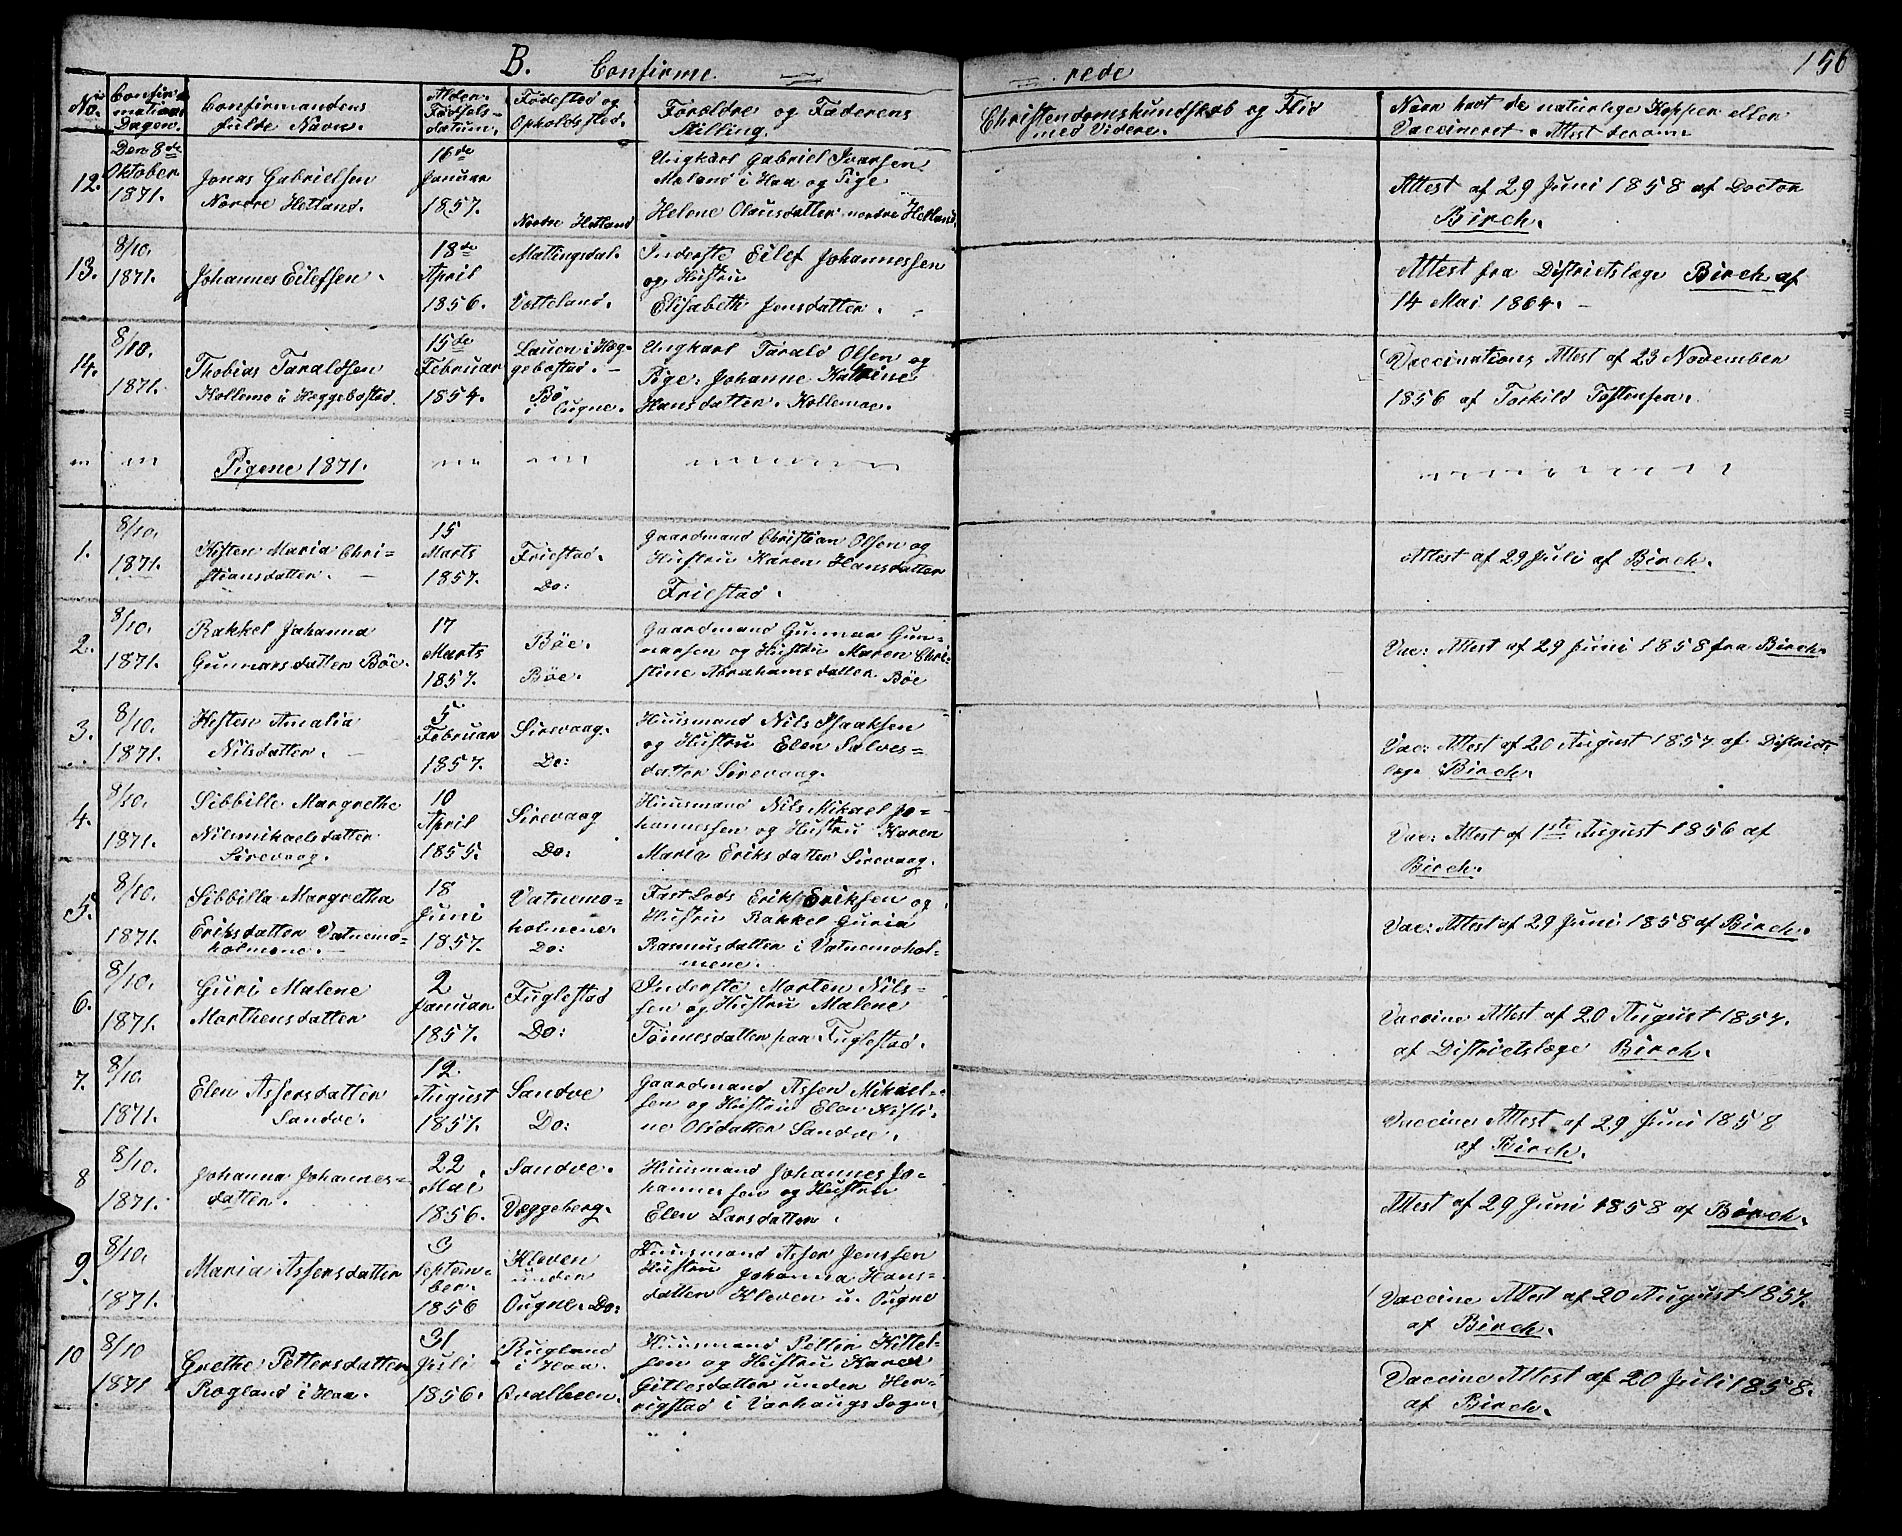 B. Confirme rede 156
No. Confirmations Dagen. Confirmandens fulde Navn. Alder. Fødsels-datum. Fødested og Opholdssted. Forældre og Faderens Stilling. Christendomskundskab og Flid med Videre. Naar havt de naturlige Kopper eller Vaccineret. Attest derom.
12. Den 8de Oktober 1871.
Jonas Gabrielsen
Nordre Hetland.
16de Januar 1857.
Nordre Hetland
Ungkarl Gabriel Ivarsen
Maland i Haa og Pige
Helene Olausdatter nordre Hetland.
Attest af 29 Juni 1858 af Doctor
Birch.
13. 8/10. 1871.
Johannes Eilefsen.
18de April 1856.
Matingsdal.
Votteland.
Inderste Eilef Johannessen
og Hustru
Elisabeth Jensdatter.
Attest fra Districtslæge Birch af
14 Mai 1864.
14. 8/10. 1871.
Thobias Taraldsen
Kollemo i Heggebostad.
15de Februar 1854.
Lauen i Heg-
gebostad.
Bø
i Ougne.
Ungkarl Tarald Olsen og
Pige: Johanne Katrine
Hansdatter. Kollemoe.
Vaccinations Attest af 23 November
1856 af Torkild Tostensen.
" " Pigene 1871. " " "
1. 8/10. 1871.
Kisten Maria Chri-
stiansdatter.
15 Marts 1857.
Friestad.
Do:
Gaardmand Christian Olsen og
Hustru Karen Hansdatter
Friestad.
Attest af 29 Juli af Birch.
2. 8/10. 1871.
Rakkel Johanna
Gunnarsdatter Bøe.
17 Marts 1857.
Bøe.
Bøe.
Gaardmand Gunnar Gun-
narsen og Hustru Maren Chri-
stine Abrahamsdatter Bøe
Vac: Attest af 29 Juni 1858 fra Birch.
3. 8/10. 1871.
Kisten Amalia
Nilsdatter.
5 Februar 1857.
Sirevaag.
Do:
Huusmand Nils Isaaksen
og Hustru Elen Salves-
datter Sirevaag.
Vac: Attest af 20 August 1857 af Districts
læge Birch.
4. 8/10. 1871.
Sibbille Margrethe
Nilsmikaelsdatter
Sirevaag.
10 April 1855.
Sirevaag
Do:
Huusmand Nils Mikael Jo-
hannessen og Hustru Karen
Maria Eriksdatter Sirevaag.
Vac: Attest af 1ste August 1856 af
Birch.
5. 8/10. 1871.
Sibbilla Margretha
Eriksdatter Vatnemo-
holmene.
18 Juni 1857.
Vatnemo-
holmene.
Do:
Fast Lods Erik Eriksen og
Hustru Rakkel Guria
Rasmusdatter i Vatnemohol-
mene.
Vac: Attest af 29 Juni 1858 af Birch.
6. 8/10. 1871.
Guri Malene
Marthensdatter
2 Januar 1857.
Fuglestad
Do:
Inderste Morten Nils-
sen og Hustru Malene
Tønnesdatter paa Fuglestad.
Vaccine Attest af 20 August 1857.
af Districtslæge Birch.
7. 8/10. 1871.
Elen Assersdatter
Sandve.
12. August 1857.
Sandve
Do:
Gaardmand Asser Mikael-
sen og Hustru Elen Kisti-
ne Olsdatter Sandve.
Vaccine Attest af 29 Juni 1858
af Birch.
8 8/10. 1871.
Johanna Johannes-
datter.
22. Mai 1856.
Sandve.
Væggeberg.
Huusmand Johannes Jo-
hannessen og Hustru
Elen Larsdatter.
Attest af 29 Juni 1858 af Birch.
9. 8/10. 1871.
Maria Assersdatter
3 Septem-
ber. 1856
Kleven
under
Ougne. Do:
Huusmand Asser Jenssen
Hustru Johanna Hans-
datter Kleven u. Ougne
Vaccine Attest af 20 August 1857.
af Birch.
10 8/10 1871
Grethe Pettersdatter
Rogland i Haa.
31 Juli 1856.
Rugland
i Haa.
Qvalbein.
Huusmand Petter Kittel-
sen og Hustru Karen
Gitlesdatter under Her-
rigstad i Varhaugs Sogn.
Vaccine Attest af 20 Juli 1858.
af Birch.